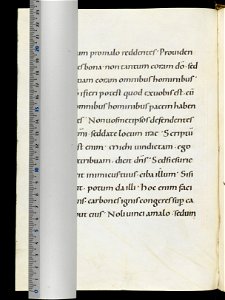 um promalo reddentes · Providen
es bona · non tantum coram dō · sed
nam coram omnibus hominibus ·
i fieri potest quod ex vobis est · cū
omnibus hominibus pacem haben
es · Non vosmetipsos defendentes
um · sed date locum irae · Scriptū
st enim · Mihi vindictam · ego
retribuam · dicit dn̄s · Sed si esurie
it inimicus tuus · ciba illum · Si si
it · potum da illi · Hoc enim faci
ns · carbones ignis congeres sup ca
put eius · Noli vinci a malo · sed um